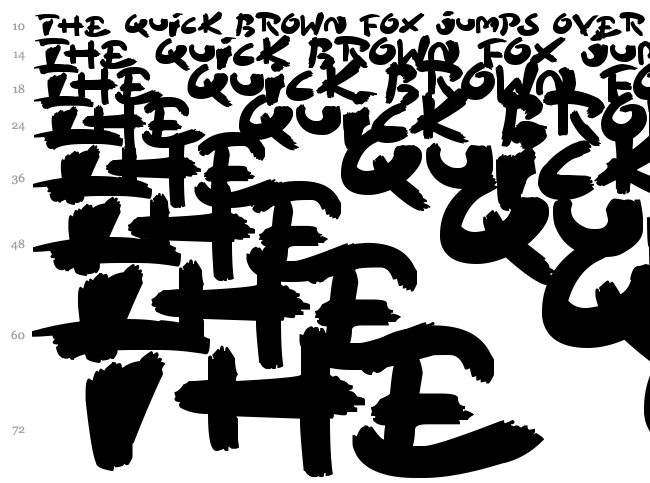 10 THE QUiCK BROWN FOX jUMPS OVER
14 THE QUiCK BROWN FOX jUM
18 THE QUiCK BROWN FO
24 THE QUiCK BRO
36 THE QUiCK
48 THE QU
60 THE Q
72 THE